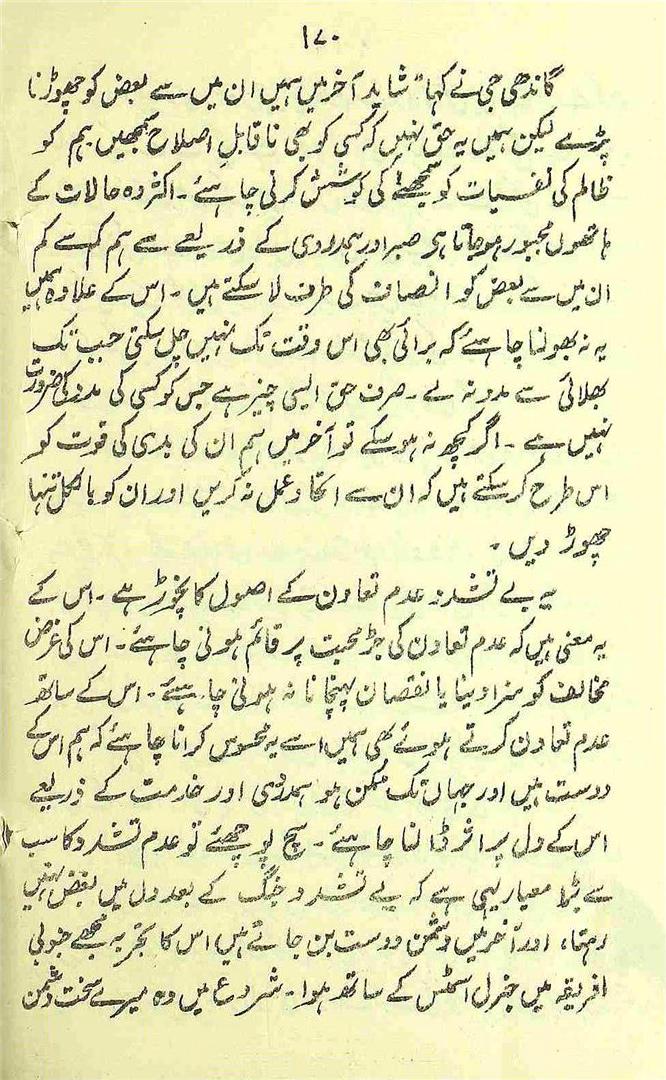 ۱۷۰
گاندھی جی نے کہا "شاید آخر میں ہمیں ان میں سے بعض کو چھوڑنا
پڑے لیکن ہمیں یہ حق نہیں کہ کسی کو بھی ناقابلِ اصلاح سمجھیں۔ ہم کو
ظالم کی نفسیات کو سمجھنے کی کوشش کرنی چاہئے۔ اکثر وہ حالات کے
ہاتھوں مجبور ہو جاتا ہی صبر اور ہمدردی کے ذریعے سے ہم کم سے کم
ان میں سے بعض کو انصاف کی طرف لا سکتے ہیں۔ اس کے علاوہ ہمیں
یہ نہ بھولنا چاہئے کہ برائی بھی اس وقت تک نہیں چل سکتی جب تک
بھلائی سے مدد نہ لے۔ صرف حق ایسی چیز ہے جس کو کسی کی مدد کی ضرورت
نہیں ہے۔ اگر کچھ نہ ہو سکے تو آخر میں ہم ان کی بدی کی قوت کو
اس طرح کر سکتے ہیں کہ ان سے اتحاد عمل نہ کریں اور ان کو بالکل تنہا
چھوڑ دیں۔
یہ بے تشدد عدم تعاون کے اصول کا نچوڑ ہے۔ اس کے
یہ معنی ہیں کہ عدم تعاون کی جڑ محبت پر قائم ہونی چاہئے۔ اس کی غرض
مخالف کو سزا دینا یا نقصان پہنچانا نہ ہونی چاہئے۔ اس کے ساتھ
عدم تعاون کرتے ہوئے بھی ہمیں اسے یہ محسوس کرانا چاہئے کہ ہم اس کے
دوست ہیں اور جہاں تک ممکن ہو ہمدردی اور خدمت کے ذریعے
اس کے دل پر اثر ڈالنا چاہئے۔ سچ پوچھئے تو عدم تشدد کا سب
سے بڑا معیار یہی ہے کہ بے تشدد جنگ کے بعد دل میں بغض نہیں
رہتا، اور آخر میں دشمن دوست بن جاتے ہیں اس کا تجربہ مجھے جنوبی
افریقہ میں جنرل اسمٹس کے ساتھ ہوا۔ شروع میں وہ میرے سخت دشمن